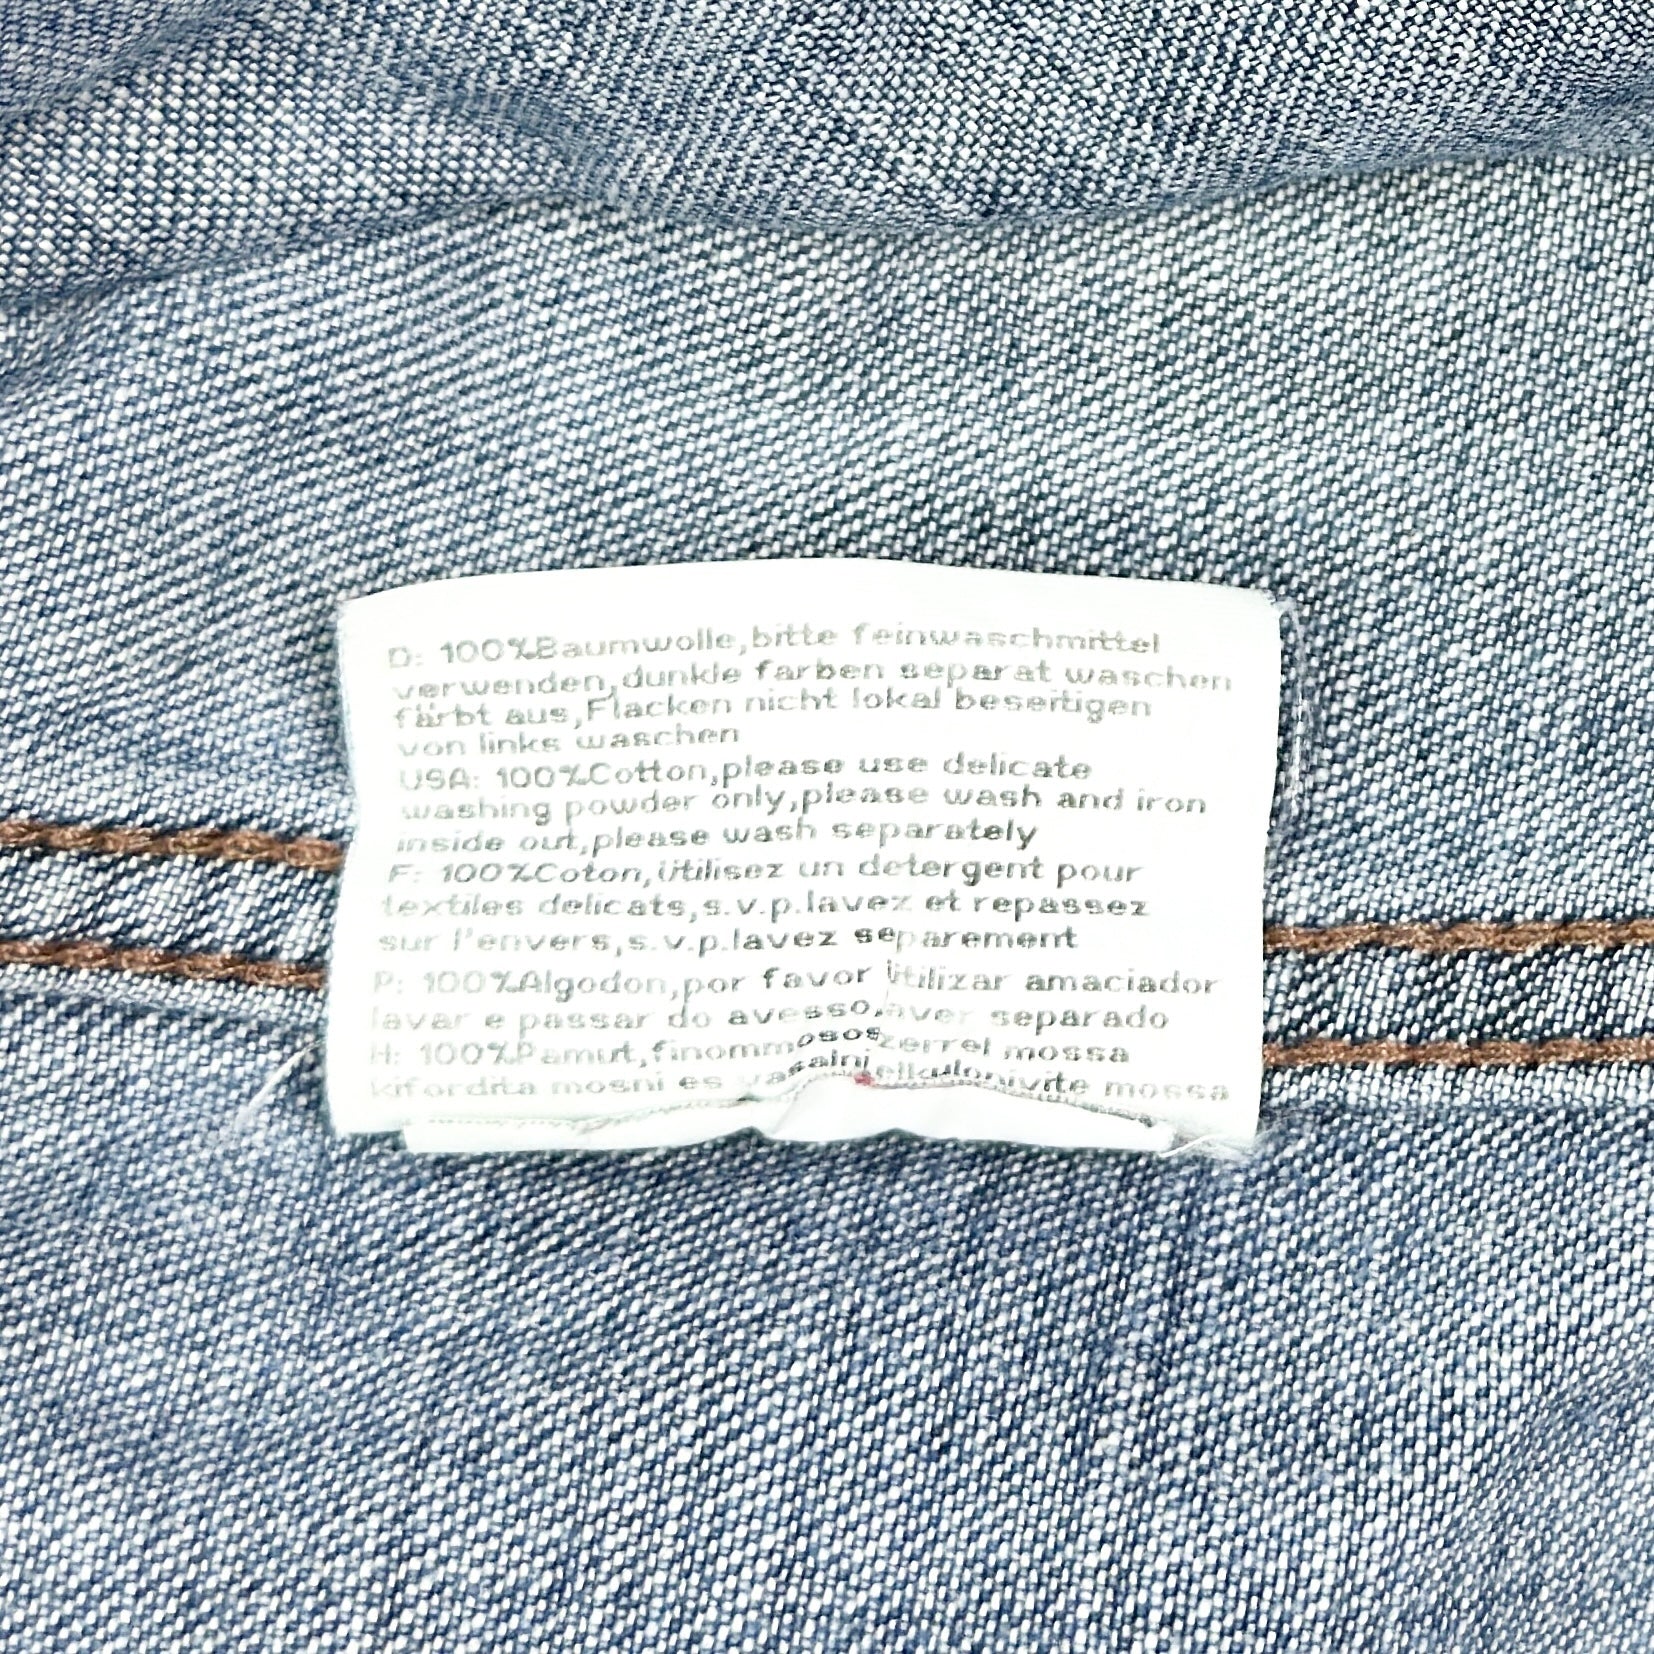 D: 100%Baumwolle,bitte feinwaschmittel
verwenden,dunkle farben separat waschen
färbt aus,Flecken nicht lokal beseitigen
von links waschen
USA: 100%Cotton,please use delicate
washing powder only,please wash and iron
inside out,please wash separately
F: 100%Coton,Utilisez un detergent pour
textiles delicats,s.v.p.lavez et repassez
sur l'envers,s.v.p.lavez separement
P: 100%Algodon,por favor Utilizar amaciador
lavar e passar do avesso,laver separado
H: 100%Pamut,finommososzerrel mossa
kifordita mosni es vasalni,elkulonivite mossa